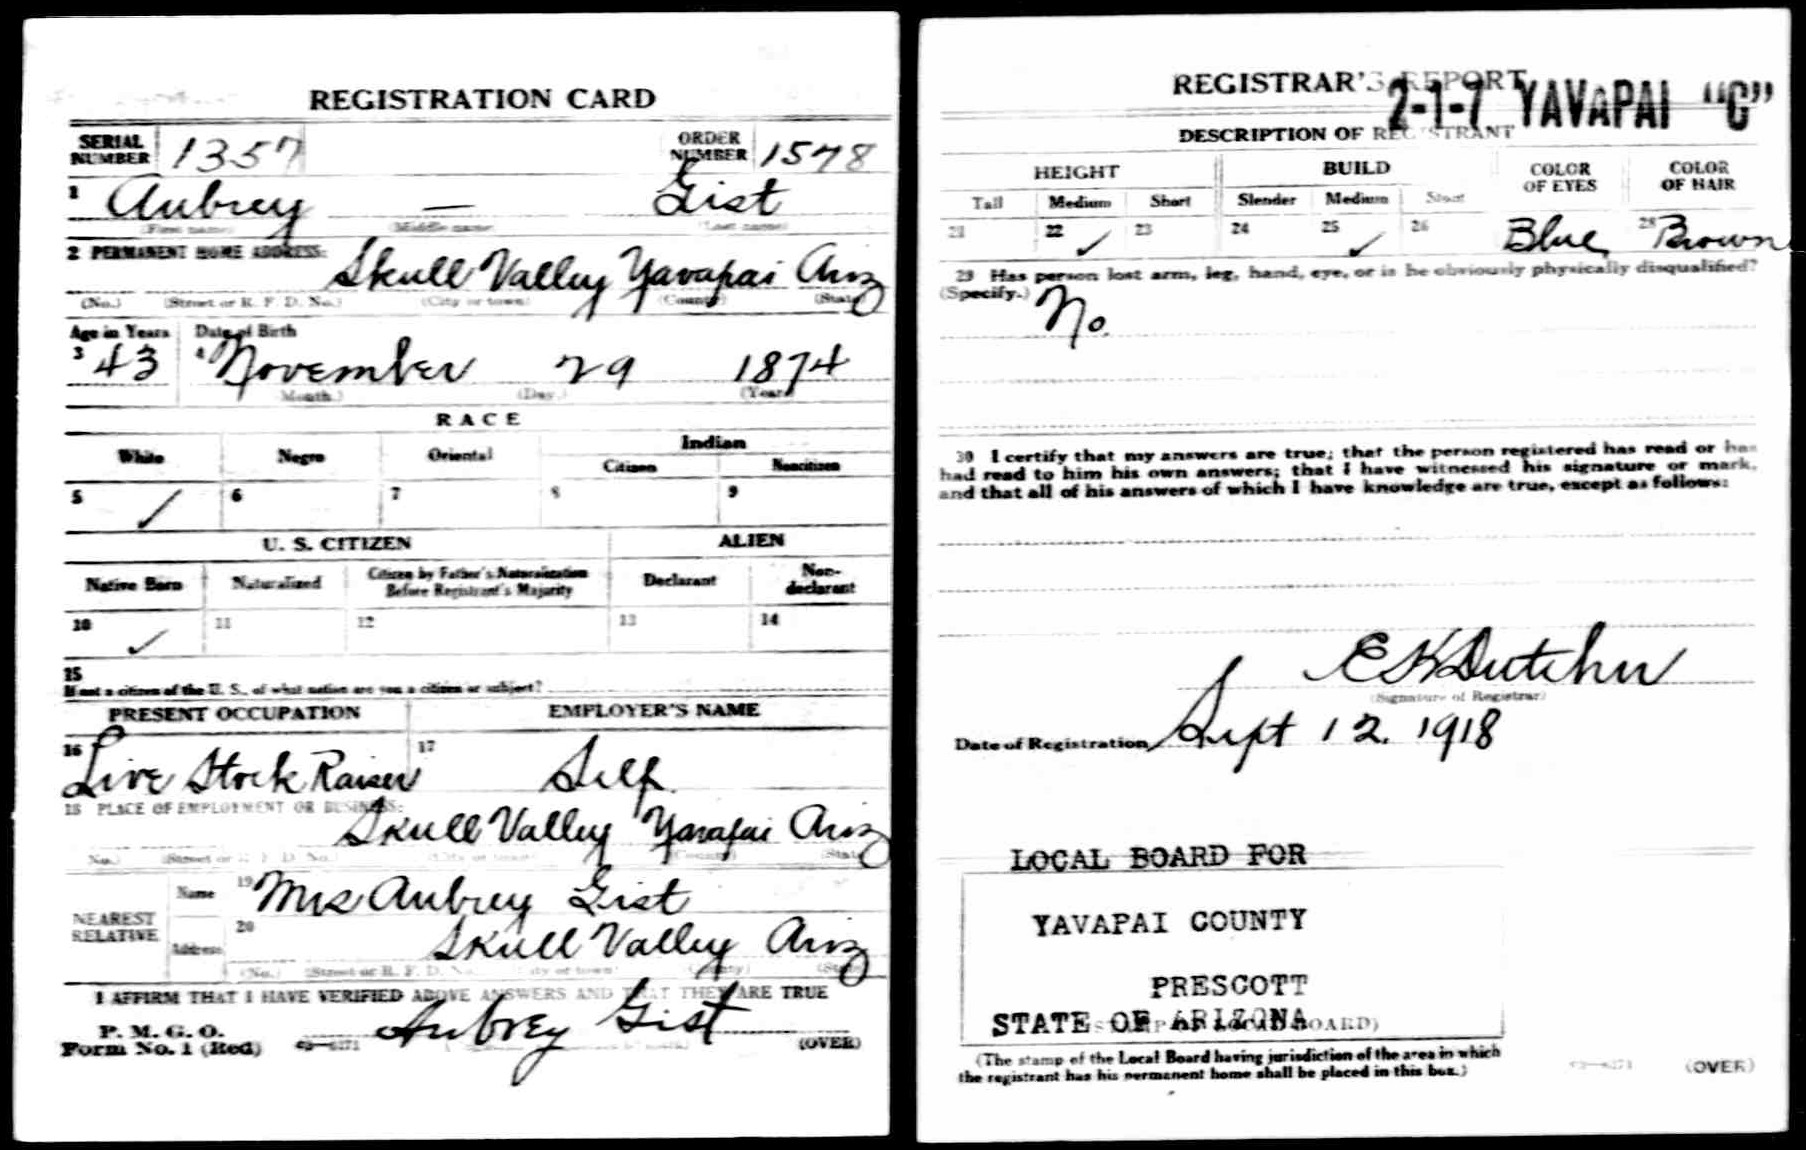 REGISTRATION CARD
SERIAL NUMBER 1357 ORDER NUMBER 1578
1 Aubrey — Gist
(First name) (Middle name) (Last name)
2 PERMANENT HOME ADDRESS:
Skull Valley Yavapai Ariz
(No.) (Street or R. F. D. No.) (City or town) (County) (State)
Age in Years Date of Birth
3 43 4 November 29 1874
(Month.) (Day.) (Year)
RACE
White Negro Oriental Indian
Citizen Noncitizen
5 ✓ 6 7 8 9
U. S. CITIZEN ALIEN
Native Born Naturalized Citizen by Father's Naturalization Before Registrant's Majority Declarant Non-declarant
10 ✓ 11 12 13 14
15
If not a citizen of the U. S., of what nation are you a citizen or subject?
PRESENT OCCUPATION EMPLOYER'S NAME
16 Live Stock Raiser 17 Self
18 PLACE OF EMPLOYMENT OR BUSINESS:
Skull Valley Yavapai Ariz
(No.) (Street or R. F. D. No.) (City or town) (County) (State)
NEAREST RELATIVE
Name 19 Mrs Aubrey Gist
Address 20 Skull Valley Ariz
(No.) (Street or R. F. D. No.) (City or town) (County) (State)
I AFFIRM THAT I HAVE VERIFIED ABOVE ANSWERS AND THAT THEY ARE TRUE
P. M. G. O.
Form No. 1 (Red) Aubrey Gist (OVER)
REGISTRAR'S REPORT
2-1-7 YAVAPAI "C"
DESCRIPTION OF REGISTRANT
HEIGHT BUILD COLOR OF EYES COLOR OF HAIR
Tall Medium Short Slender Medium Stout
21 22 ✓ 23 24 25 ✓ 26 Blue 28 Brown
29 Has person lost arm, leg, hand, eye, or is he obviously physically disqualified?
(Specify.) No.
30 I certify that my answers are true; that the person registered has read or has
had read to him his own answers; that I have witnessed his signature or mark,
and that all of his answers of which I have knowledge are true, except as follows:
(Signature of Registrar)
Date of Registration Sept 12. 1918
LOCAL BOARD FOR
YAVAPAI COUNTY
PRESCOTT
STATE OF ARIZONA
(The stamp of the Local Board having jurisdiction of the area in which
the registrant has his permanent home shall be placed in this box.)
(OVER)